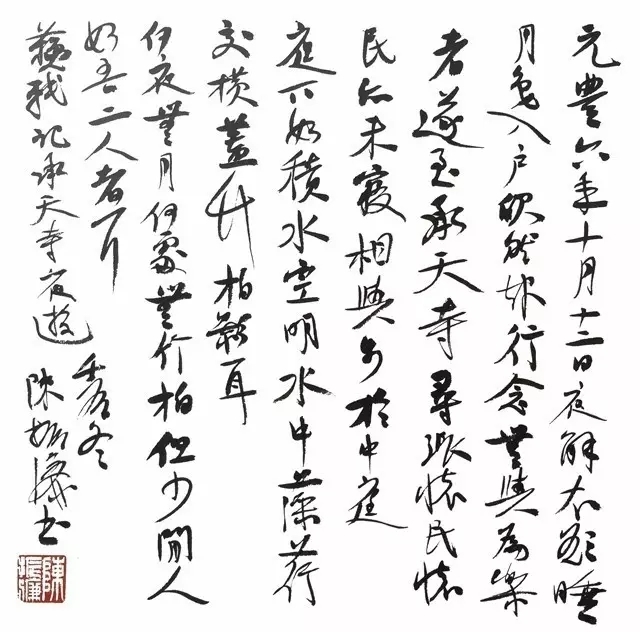 元豐六年十月十二日夜解衣欲睡
月色入戶欣然起行念無與為樂
者遂至承天寺尋張懷民懷
民亦未寢相與步於中庭
庭下如積水空明水中藻荇
交橫蓋竹柏影耳
何夜無月何處無竹柏但少閒人
如吾二人者耳
蘇軾記承天寺夜遊
冬
陳振濂書
陳振濂